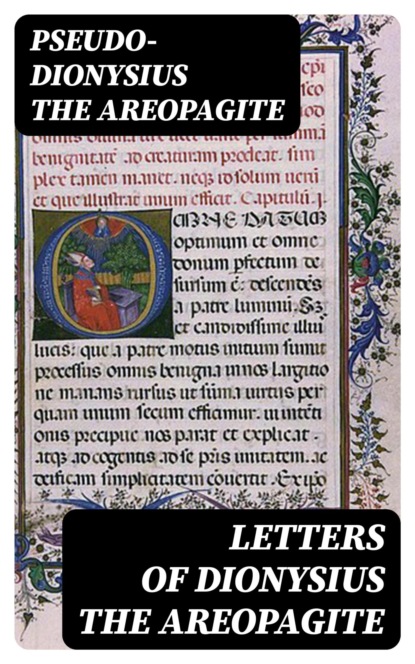 PSEUDO-
DIONYSIUS
THE AREOPAGITE
benignitatē ad creaturam
tamen manet. neqꝫ id solum ueri
et que illustrat unum efficit. Capitulū .j.
OMNE DATUM
optimum et omne
donum pfectum de
sursum ē: descendēs
a patre luminū. Sꝫ
et
lucis: que a patre motus initium sumit
processus omnis benigna in nos largitio
ne manans rursus ut sūma uirtus per
quam unum secum efficimur. ut intēti
onis precipue nos parat et explicat.
atqꝫ ad cogentis ad se pris unitatem. ac
deificam simplicitatem cōuertit. Ex ipo
LETTERS
OF DIONYSIUS
THE AREOPAGITE